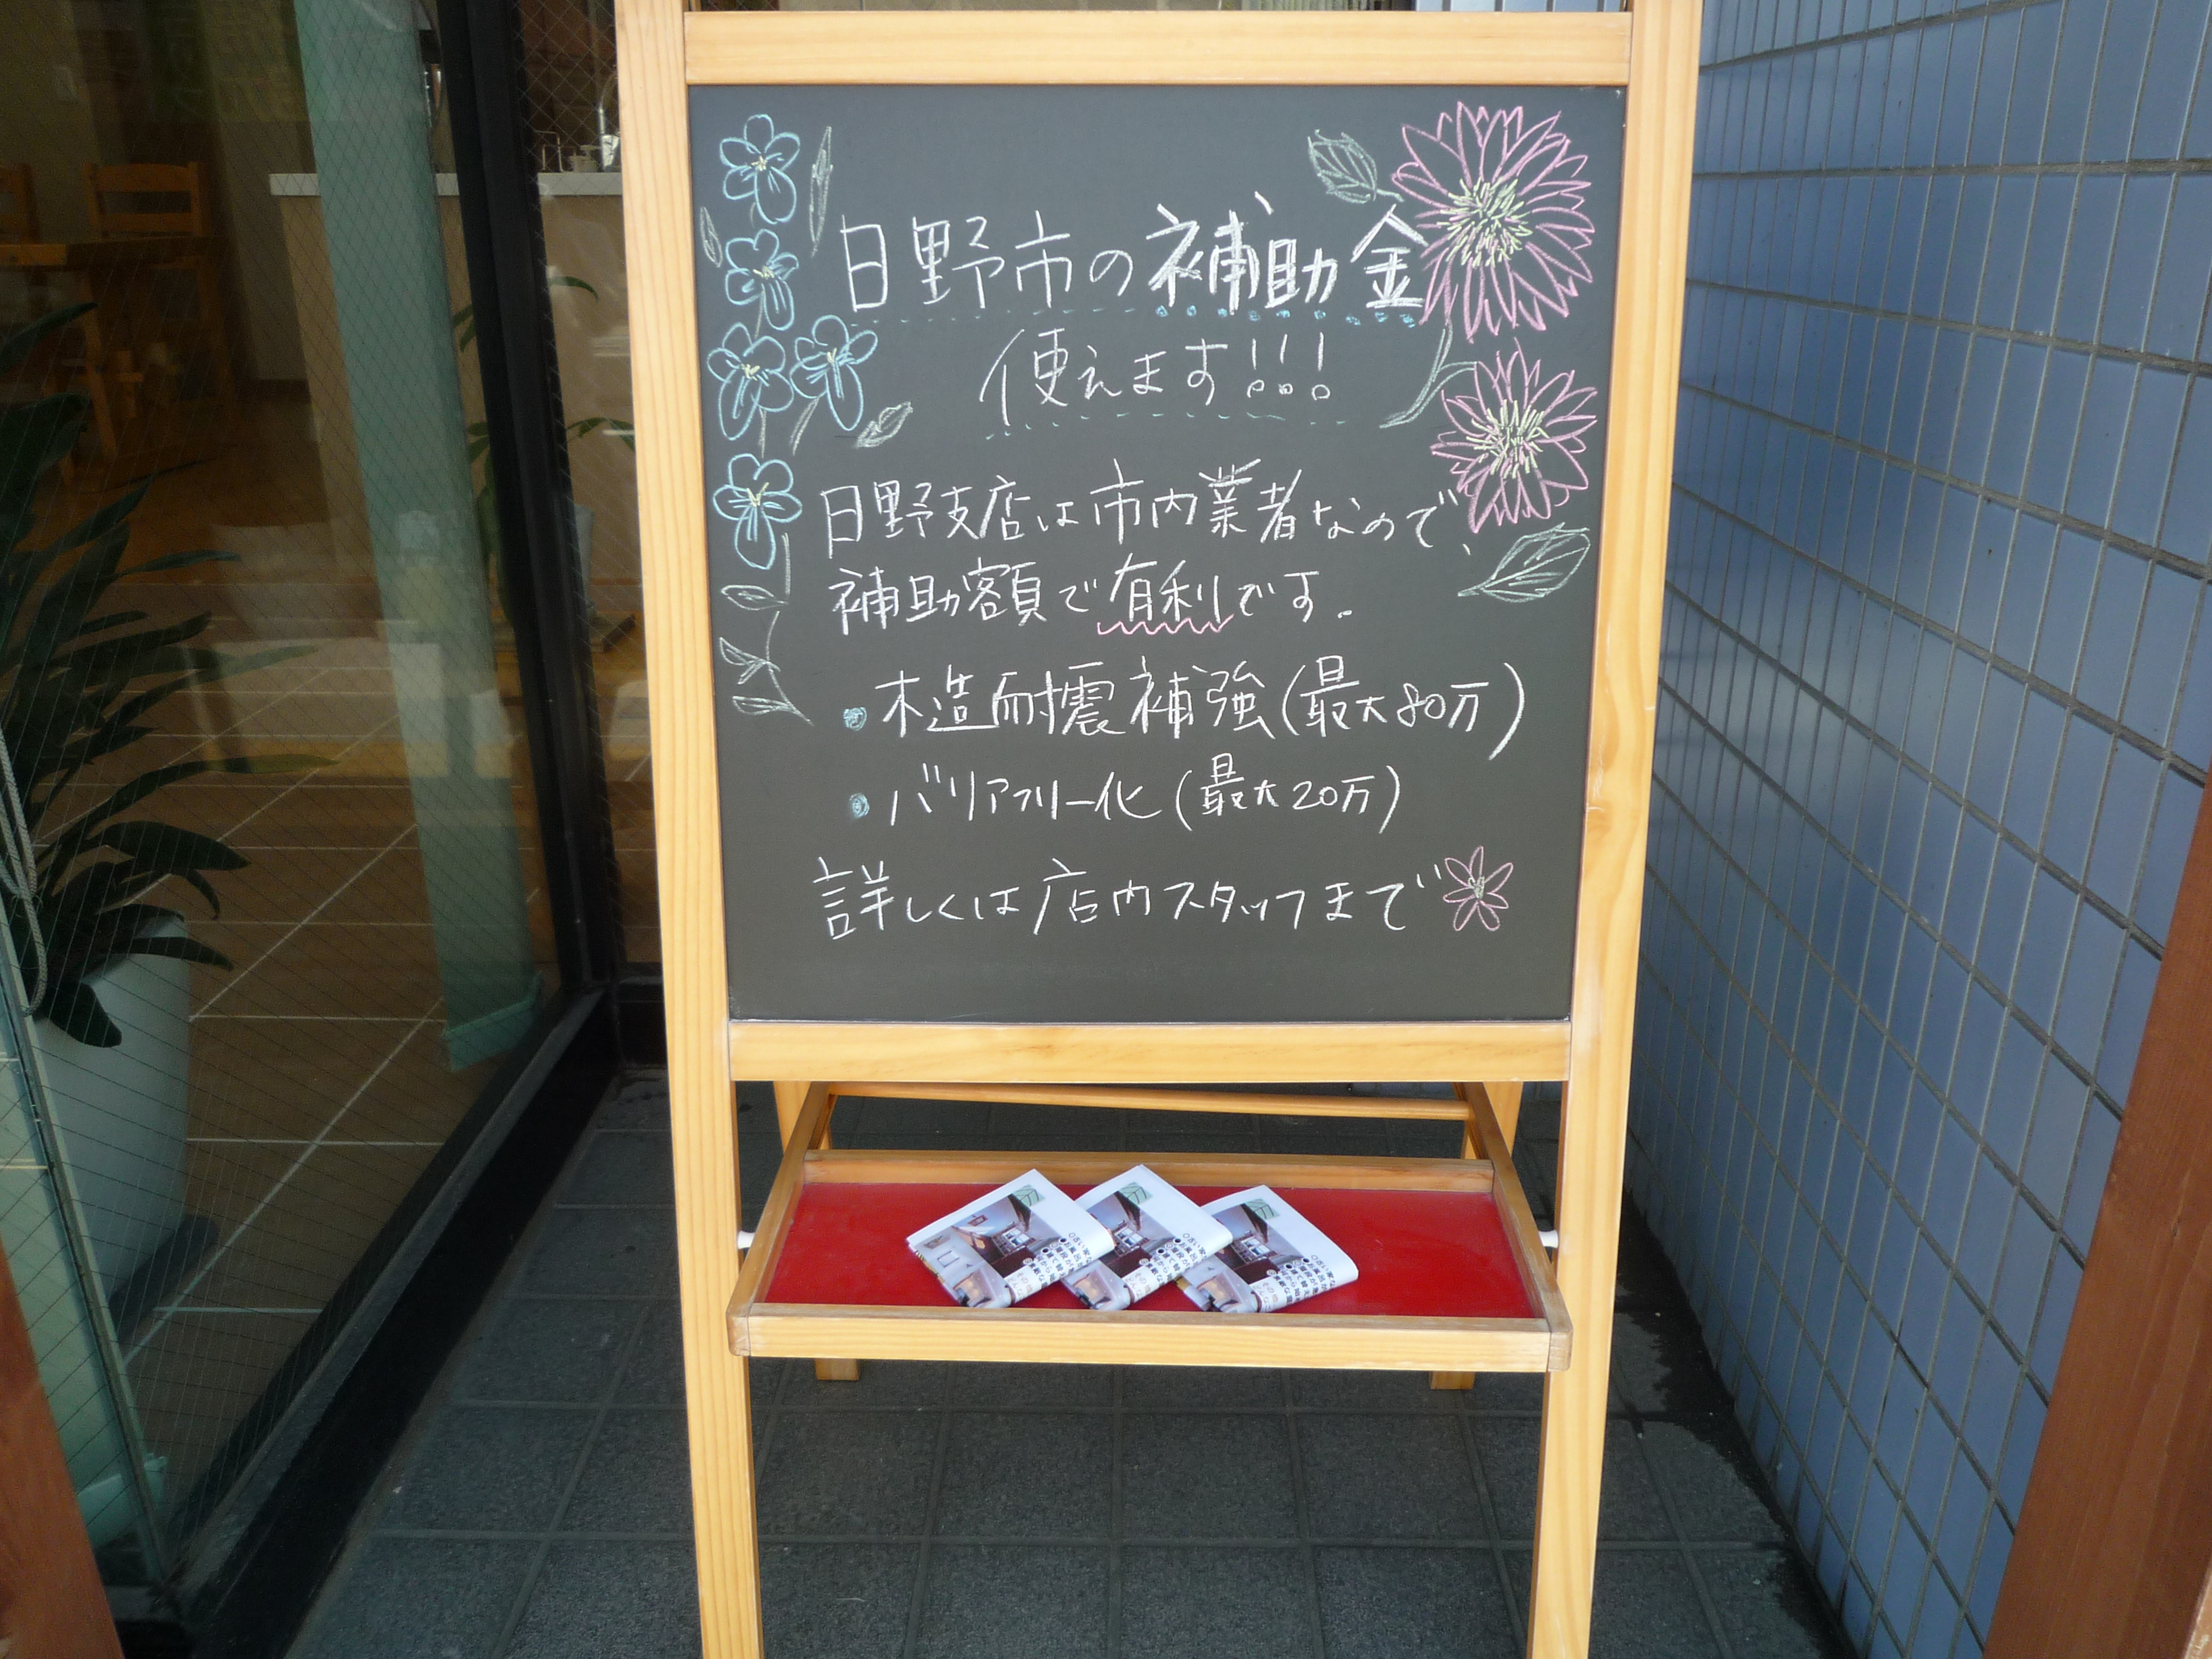 日野市の補助金
使えます!!!
日野支店は市内業者なので、
補助額で有利です。
・木造耐震補強(最大80万)
・バリアフリー化(最大20万)
詳しくは店内スタッフまで